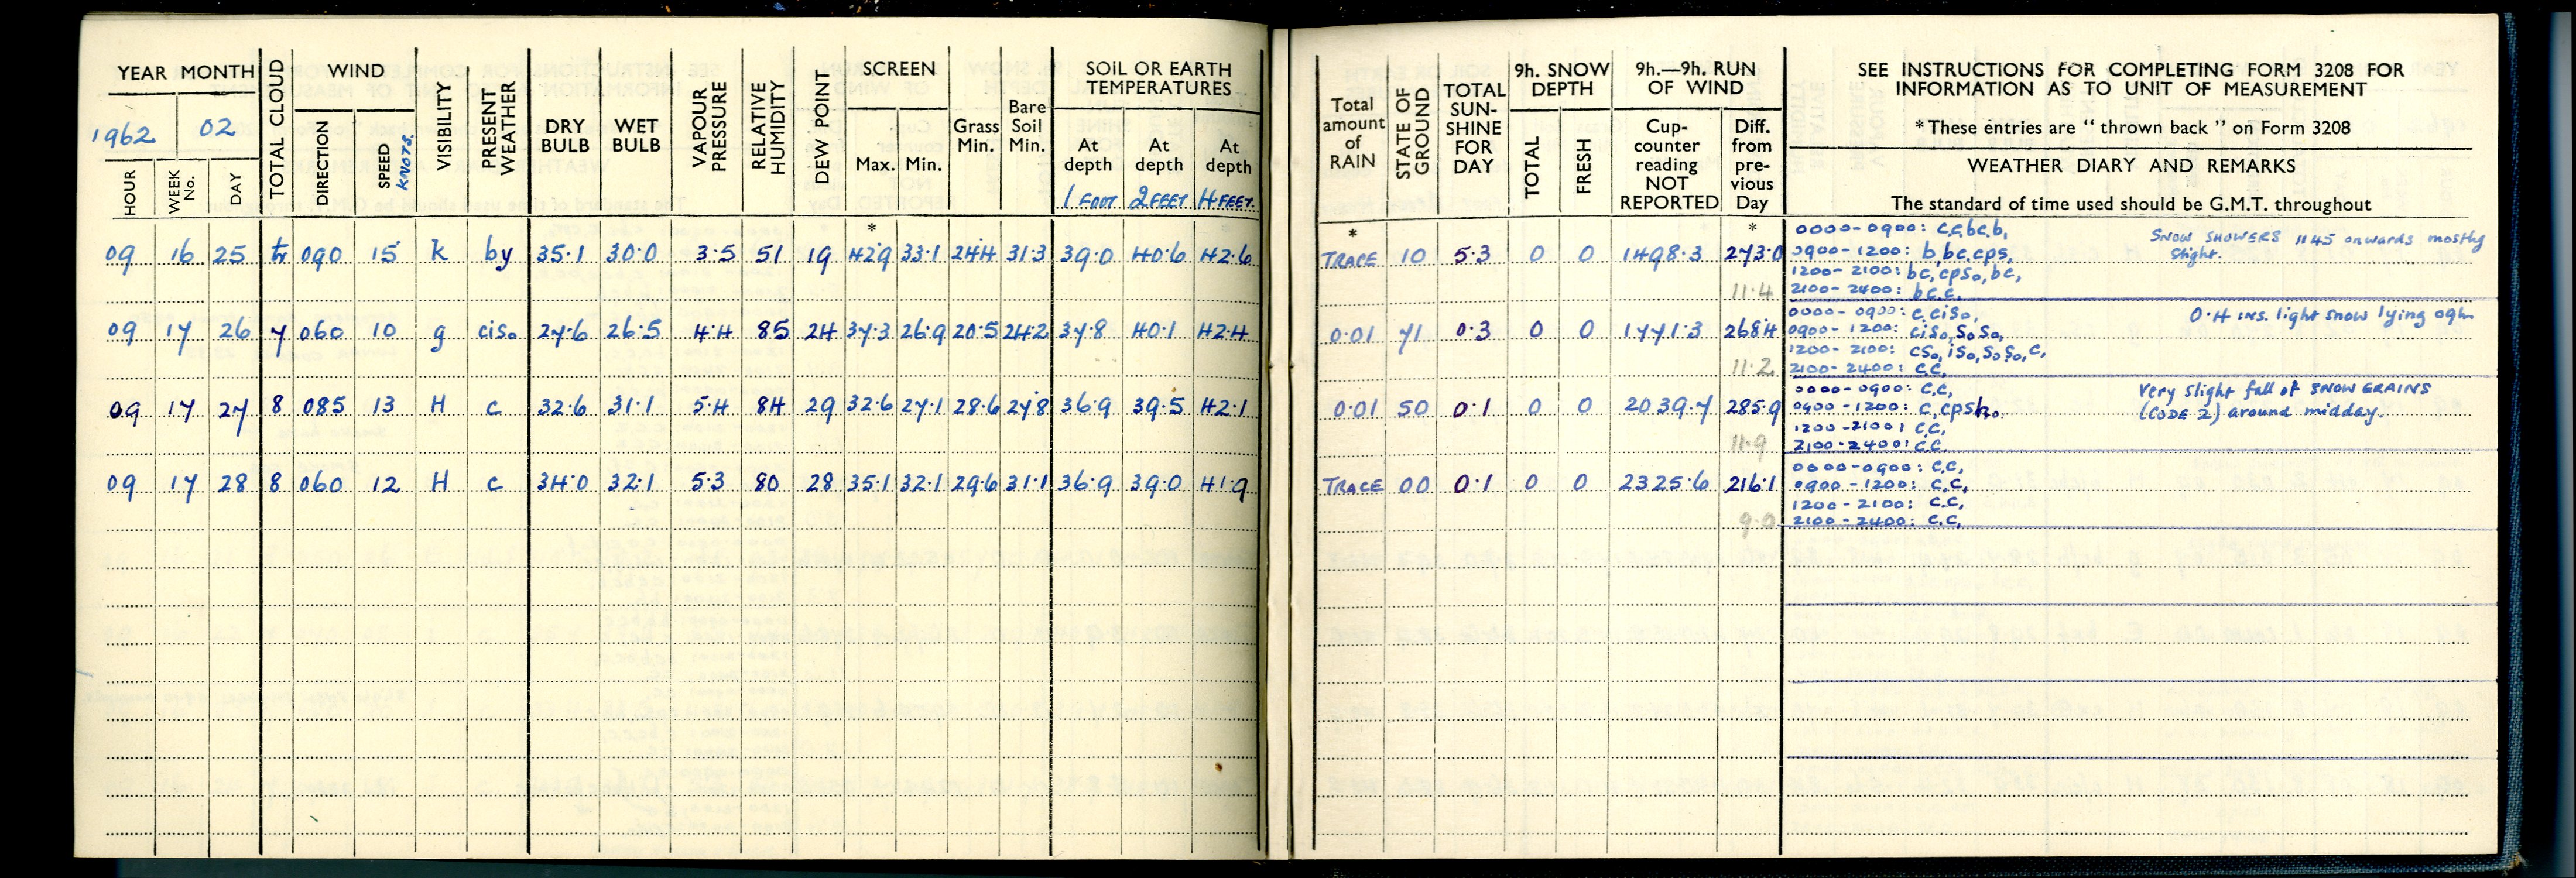 YEAR MONTH
1962 02
HOUR WEEK No. DAY
TOTAL CLOUD
WIND
DIRECTION SPEED KNOTS.
VISIBILITY
PRESENT WEATHER
DRY BULB
WET BULB
VAPOUR PRESSURE
RELATIVE HUMIDITY
DEW POINT
SCREEN
Max. Min.
Grass Min.
Bare Soil Min.
SOIL OR EARTH
TEMPERATURES
At depth At depth At depth
1 FOOT 2 FEET 4 FEET.
Total amount of RAIN
STATE OF GROUND
TOTAL SUN-SHINE FOR DAY
9h. SNOW DEPTH
TOTAL FRESH
9h.—9h. RUN OF WIND
Cup-counter reading NOT REPORTED
Diff. from pre-vious Day
SEE INSTRUCTIONS FOR COMPLETING FORM 3208 FOR
INFORMATION AS TO UNIT OF MEASUREMENT
*These entries are “ thrown back ” on Form 3208
WEATHER DIARY AND REMARKS
The standard of time used should be G.M.T. throughout
* * *
09 16 25 tr 090 15 k by 35.1 30.0 3.5 51 19 42.9 33.1 24.4 31.3 39.0 40.6 42.6 TRACE 10 5.3 0 0 1498.3 273.0
11.4
0000-0900: c,c,bc,b,
0900-1200: b,bc,cps,
1200-2100: bc,cpso,bc,
2100-2400: bc.c.
SNOW SHOWERS 1145 onwards mostly
slight.
09 17 26 7 060 10 g ciso 27.6 26.5 4.4 85 24 37.3 26.9 20.5 24.2 37.8 40.1 42.4 0.01 71 0.3 0 0 1771.3 268.4
11.2
0000-0900: c,ciso,
0900-1200: ciso,soso,
1200-2100: cso,iso,soso,c,
2100-2400: c.c.
0.4 ins. light snow lying 09h
09 17 27 8 085 13 H c 32.6 31.1 5.4 84 29 32.6 27.1 28.6 27.8 36.9 39.5 42.1 0.01 50 0.1 0 0 2039.7 285.9
11.9
0000-0900: c.c,
0900-1200: c,cpsho
1200-2100: c.c,
2100-2400: c.c.
Very slight fall of SNOW GRAINS
(CODE 2) around midday.
09 17 28 8 060 12 H c 34.0 32.1 5.3 80 28 35.1 32.1 29.6 31.1 36.9 39.0 41.9 TRACE 00 0.1 0 0 2325.6 216.1
9.0
0000-0900: c.c,
0900-1200: c.c,
1200-2100: c.c,
2100-2400: c.c,